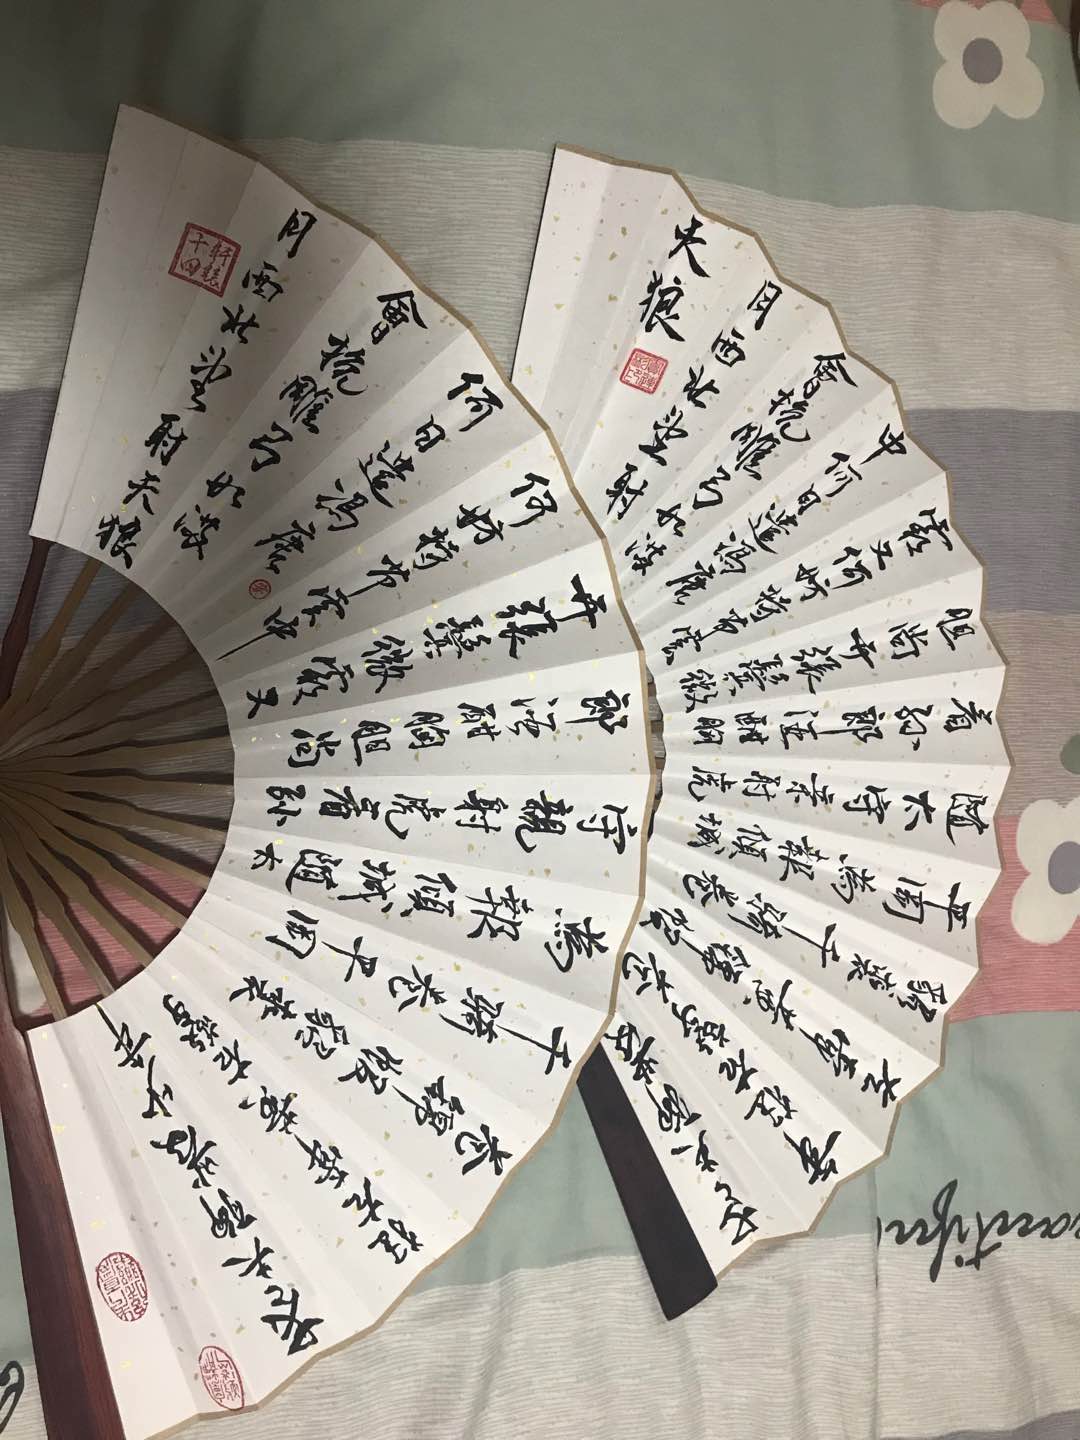 老夫聊發少年
狂左牽黃右擎
蒼錦帽貂裘
千騎卷平岡
為報傾城隨太
守親射虎看孫
郎酒酣胸膽尚
开張鬢微霜又
何妨持節雲中
何日遣馮唐
會挽雕弓如滿
月西北望射天狼
軒轅十四
老夫聊發少
年狂左牽黃
右擎蒼錦帽
貂裘千騎卷
平岡為報傾城
隨太守親射虎
看孫郎酒酣胸
膽尚开張鬢微
霜又何妨持節雲
中何日遣馮唐
會挽雕弓如滿
月西北望射
天狼